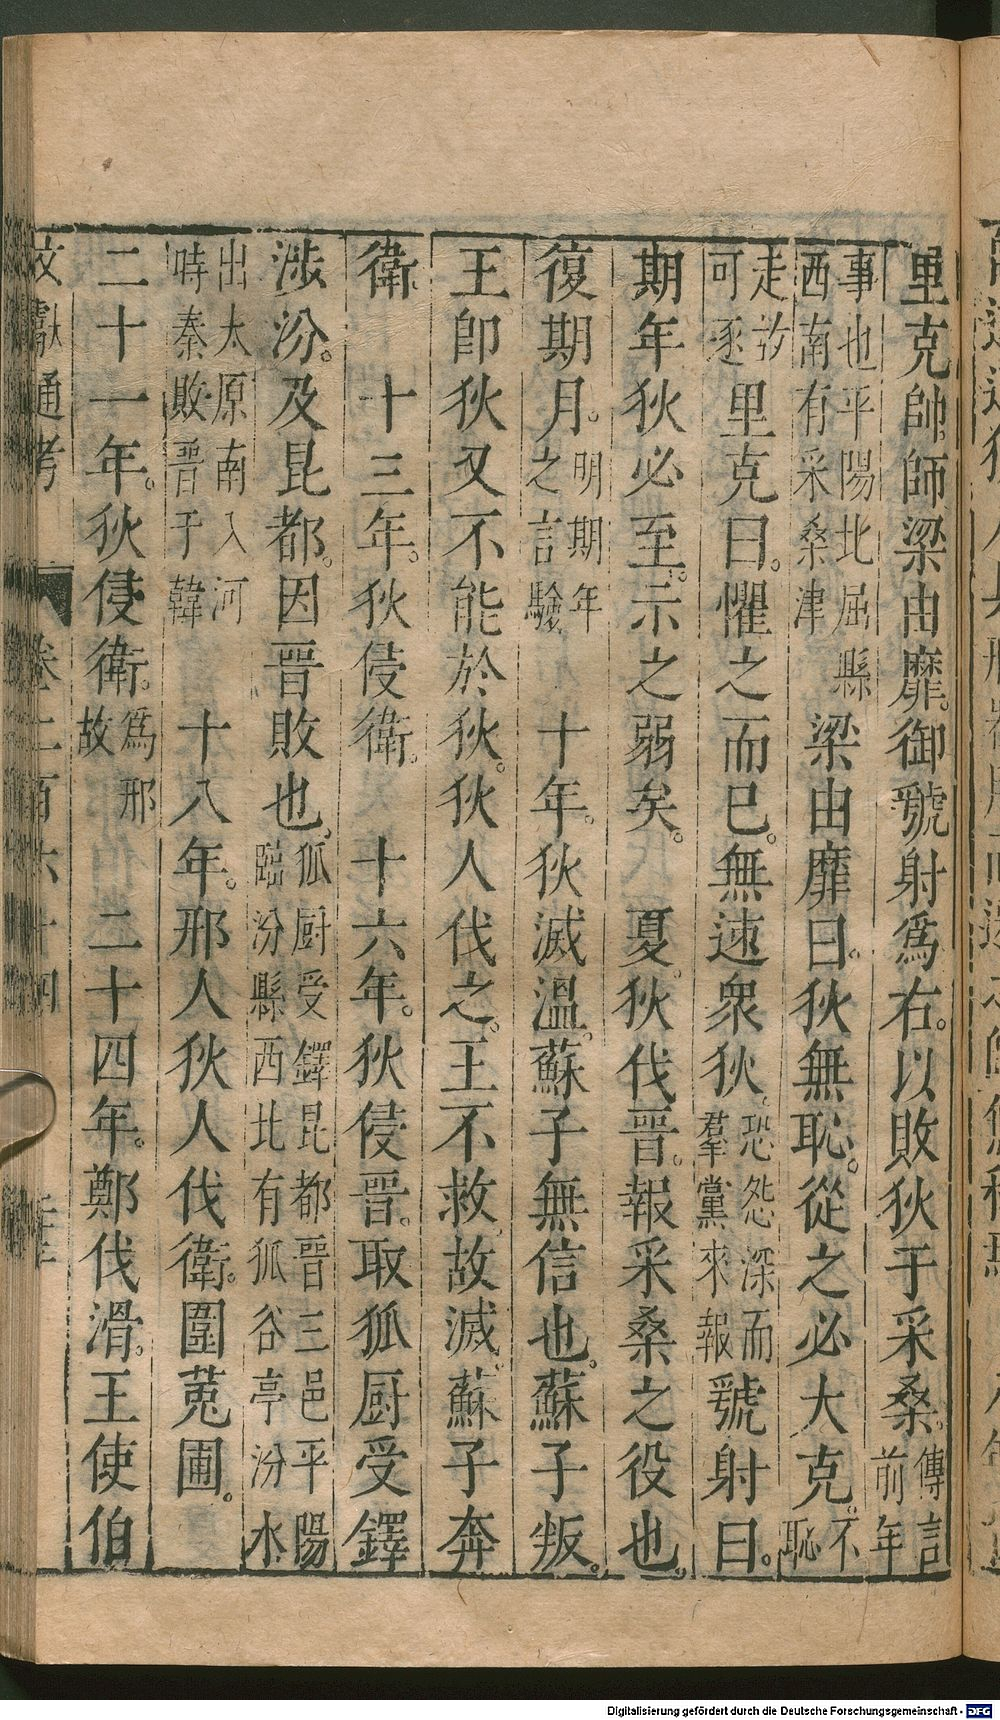 里克帥師梁由靡。御虢射爲右。以敗狄于采桑。傳言前年
事也平陽北屈縣西南有采桑津梁由靡曰。狄無恥。從之必大克。不恥
走故可逐里克曰。懼之而已。無速衆狄。恐怨深而羣黨來報虢射曰。
期年狄必至。示之弱矣。 夏。狄伐晉。報采桑之役也。
復期月。明期年之言驗 十年。狄滅溫。蘇子無信也。蘇子叛。
王卽狄又不能於狄。狄人伐之。王不救。故滅。蘇子奔
衛。 十三年。狄侵衛。 十六年。狄侵晉。取狐厨受鐸
涉汾。及昆都。因晉敗也。狐厨受鐸昆都晉三邑平陽臨汾縣西北有狐谷亭汾水
出太原南入河時秦敗晉于韓 十八年。邢人狄人伐衛。圍菟圃。
二十一年。狄侵衛。爲邢故 二十四年。鄭伐滑。王使伯
文獻通考 卷二百六十四
Digitalisierung gefördert durch die Deutsche Forschungsgemeinschaft - DFG